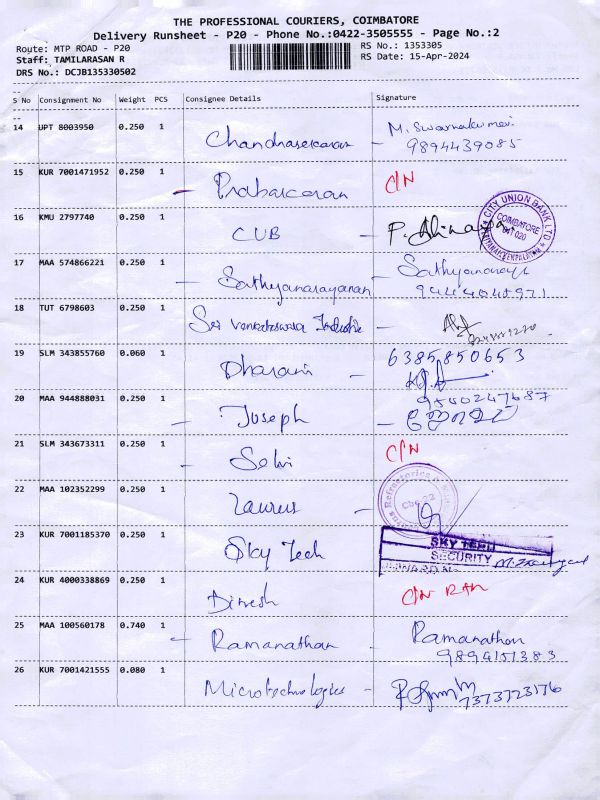 THE PROFESSIONAL COURIERS, COIMBATORE
Delivery Runsheet - P20 - Phone No.:0422-3505555 - Page No.:2
Route: MTP ROAD - P20
RS No.: 1353305
Staff: TAMILARASAN R
RS Date: 15-Apr-2024
DRS No.: DCJB135330502
S No Consignment No Weight PCS Consignee Details Signature
14 UPT 8003950 0.250 1 Chandrasekaran - M. Swarnakumari
9894439085
15 KUR 7001471952 0.250 1 - Prabakaran C/N
16 KMU 2797740 0.250 1 CUB - P.
CITY UNION BANK LTD.
COIMBATORE
641 020
17 MAA 574866221 0.250 1 - Sathyanarayanan - Sathyanaraya
18 TUT 6798603 0.250 1 Sri Venkateswara Industrie -
19 SLM 343855760 0.060 1 Dharani - 6385850653
20 MAA 944888031 0.250 1 - Joseph -
9540247687
21 SLM 343673311 0.250 1 - Selvi C/N
22 MAA 102352299 0.250 1 Laurus -
Refractories
Cbe-22
23 KUR 7001185370 0.250 1 Sky Tech
SKY TECH
SECURITY
24 KUR 4000338869 0.250 1 Dinesh C/N RAK
25 MAA 100560178 0.740 1 - Ramanathan - Ramanathan
9894151383
26 KUR 7001421555 0.080 1 Microtechnologies -
7373723176